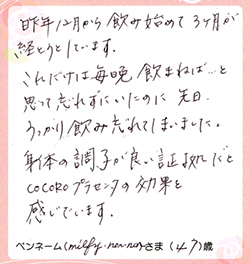 昨年12月から飲み始めて3ヶ月が
経とうとしています。
これだけは毎晩飲まねば…と
思って忘れずにいたのに先日
うっかり飲み忘れてしまいました。
身体の調子が良い証拠だと
COCOROプラセンタの効果を
感じています。
ペンネーム(milfy-na-na)さま (47)歳